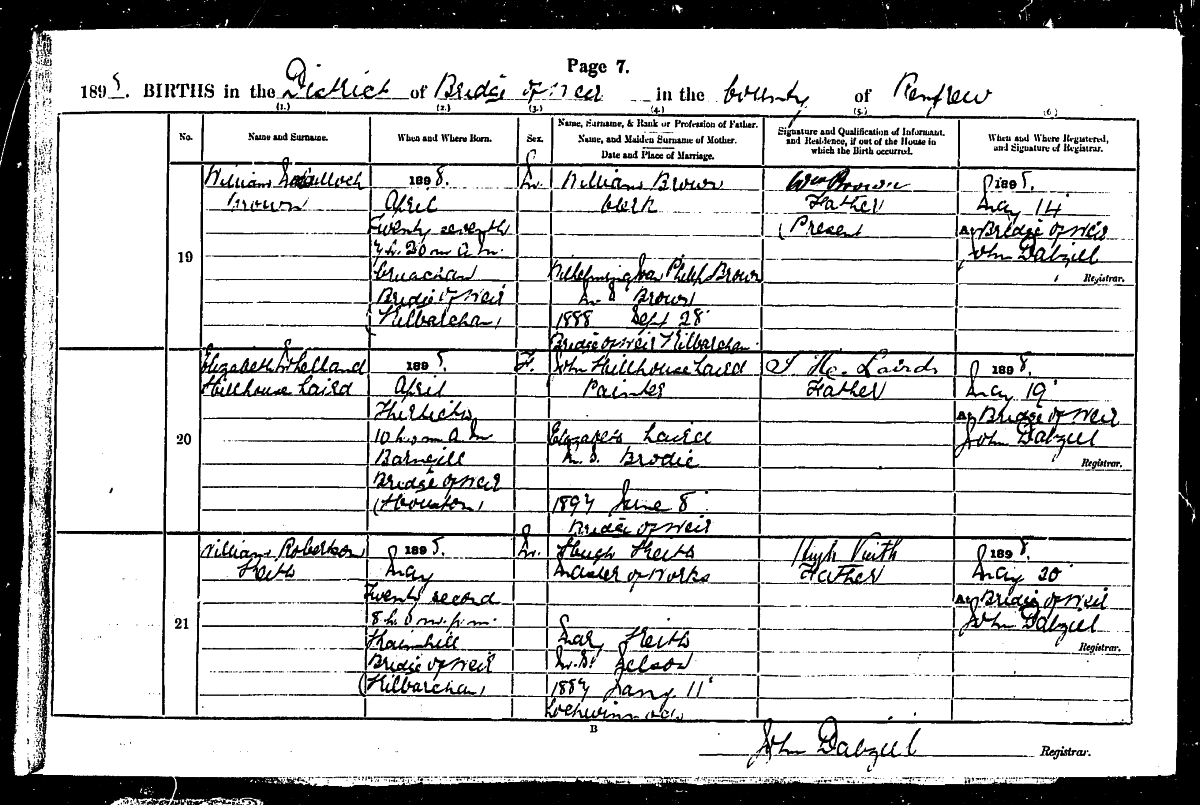 Page 7.
1898. BIRTHS in the District of Bridge of Weir in the County of Renfrew
(1.) (2.) (3.) (4.) (5.) (6.)
No. Name and Surname. When and Where Born. Sex. Name, Surname, & Rank or Profession of Father. Name, and Maiden Surname of Mother. Date and Place of Marriage. Signature and Qualification of Informant, and Residence, if out of the House in which the Birth occurred. When and Where Registered, and Signature of Registrar.
19
William
Brown
1898.
April
Twenty seventh
7h. 30m. A.M.
Cruachan
Bridge of Weir
(Kilbarchan)
M.
William Brown
Clerk
Brown
M.S. Brown
1888 Sept 28
Bridge of Weir Kilbarchan
Wm Brown
Father
(Present
1898.
May 14
At Bridge of Weir
John Dalziell
Registrar.
20
Elizabeth
Hillhouse Laird
1898
April
Thirtieth
10h. 0m. A.M.
Bridge of Weir
(Houston)
F.
John Hillhouse Laird
Painter
Elizabeth Laird
M.S. Brodie
1897 June 8
Bridge of Weir
J. H. Laird
Father
1898.
May 19
At Bridge of Weir
John Dalziell
Registrar.
21
William Robertson
Keith
1898.
May
Twenty second
8h. 0m. P.M.
Bridge of Weir
(Kilbarchan)
M.
Hugh Keith
Master of Works
Mary Keith
M.S. Nelson
1887 Jany. 11
Lochwinnoch
Hugh Keith
Father
1898.
May 30
At Bridge of Weir
John Dalziell
Registrar.
B
John Dalziell Registrar.